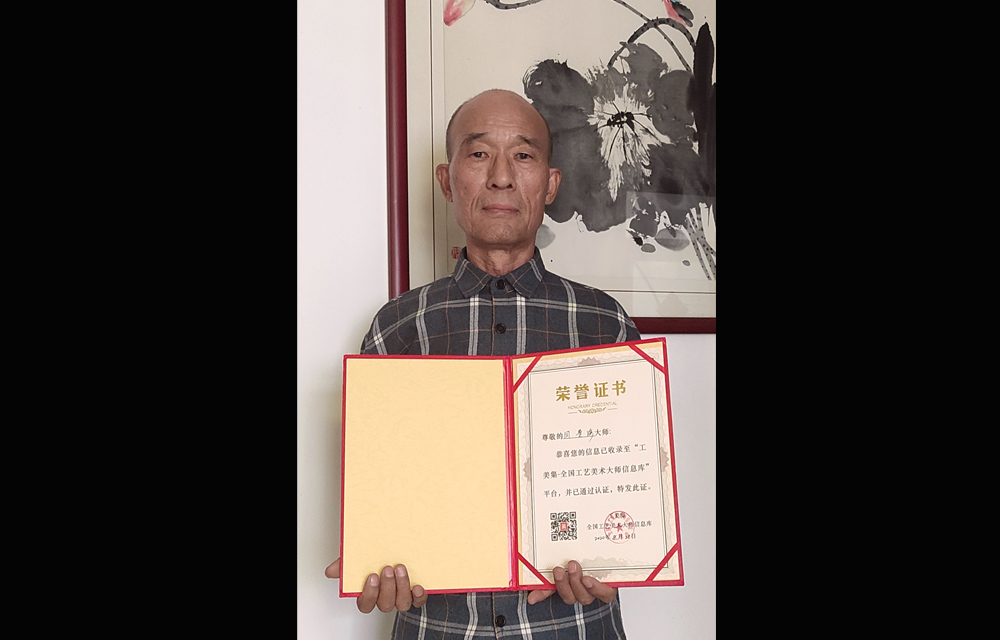 荣誉证书
HONORARY CREDENTIAL
尊敬的 大师:
恭喜您的信息已收录至“工
美集-全国工艺美术大师信息库”
平台，并已通过认证，特发此证。
全国工艺美术大师信息库